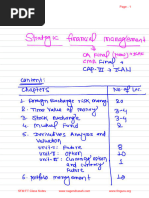 Page :- 1
Strategic financial management
CA Final
CMA Final +
CAP-III + ICAN
Content:-
Chapters
No of Lec.
1. Foreign Exchange risk mang.
20
2. Time value of money
3-4
3. Stock Exchange
3-4
4. Mutual Fund
2
5. Derivatives Analysis and
Valuation
unit-i Future
8
unit-ii Option
20
1
6. Portfolio management
10